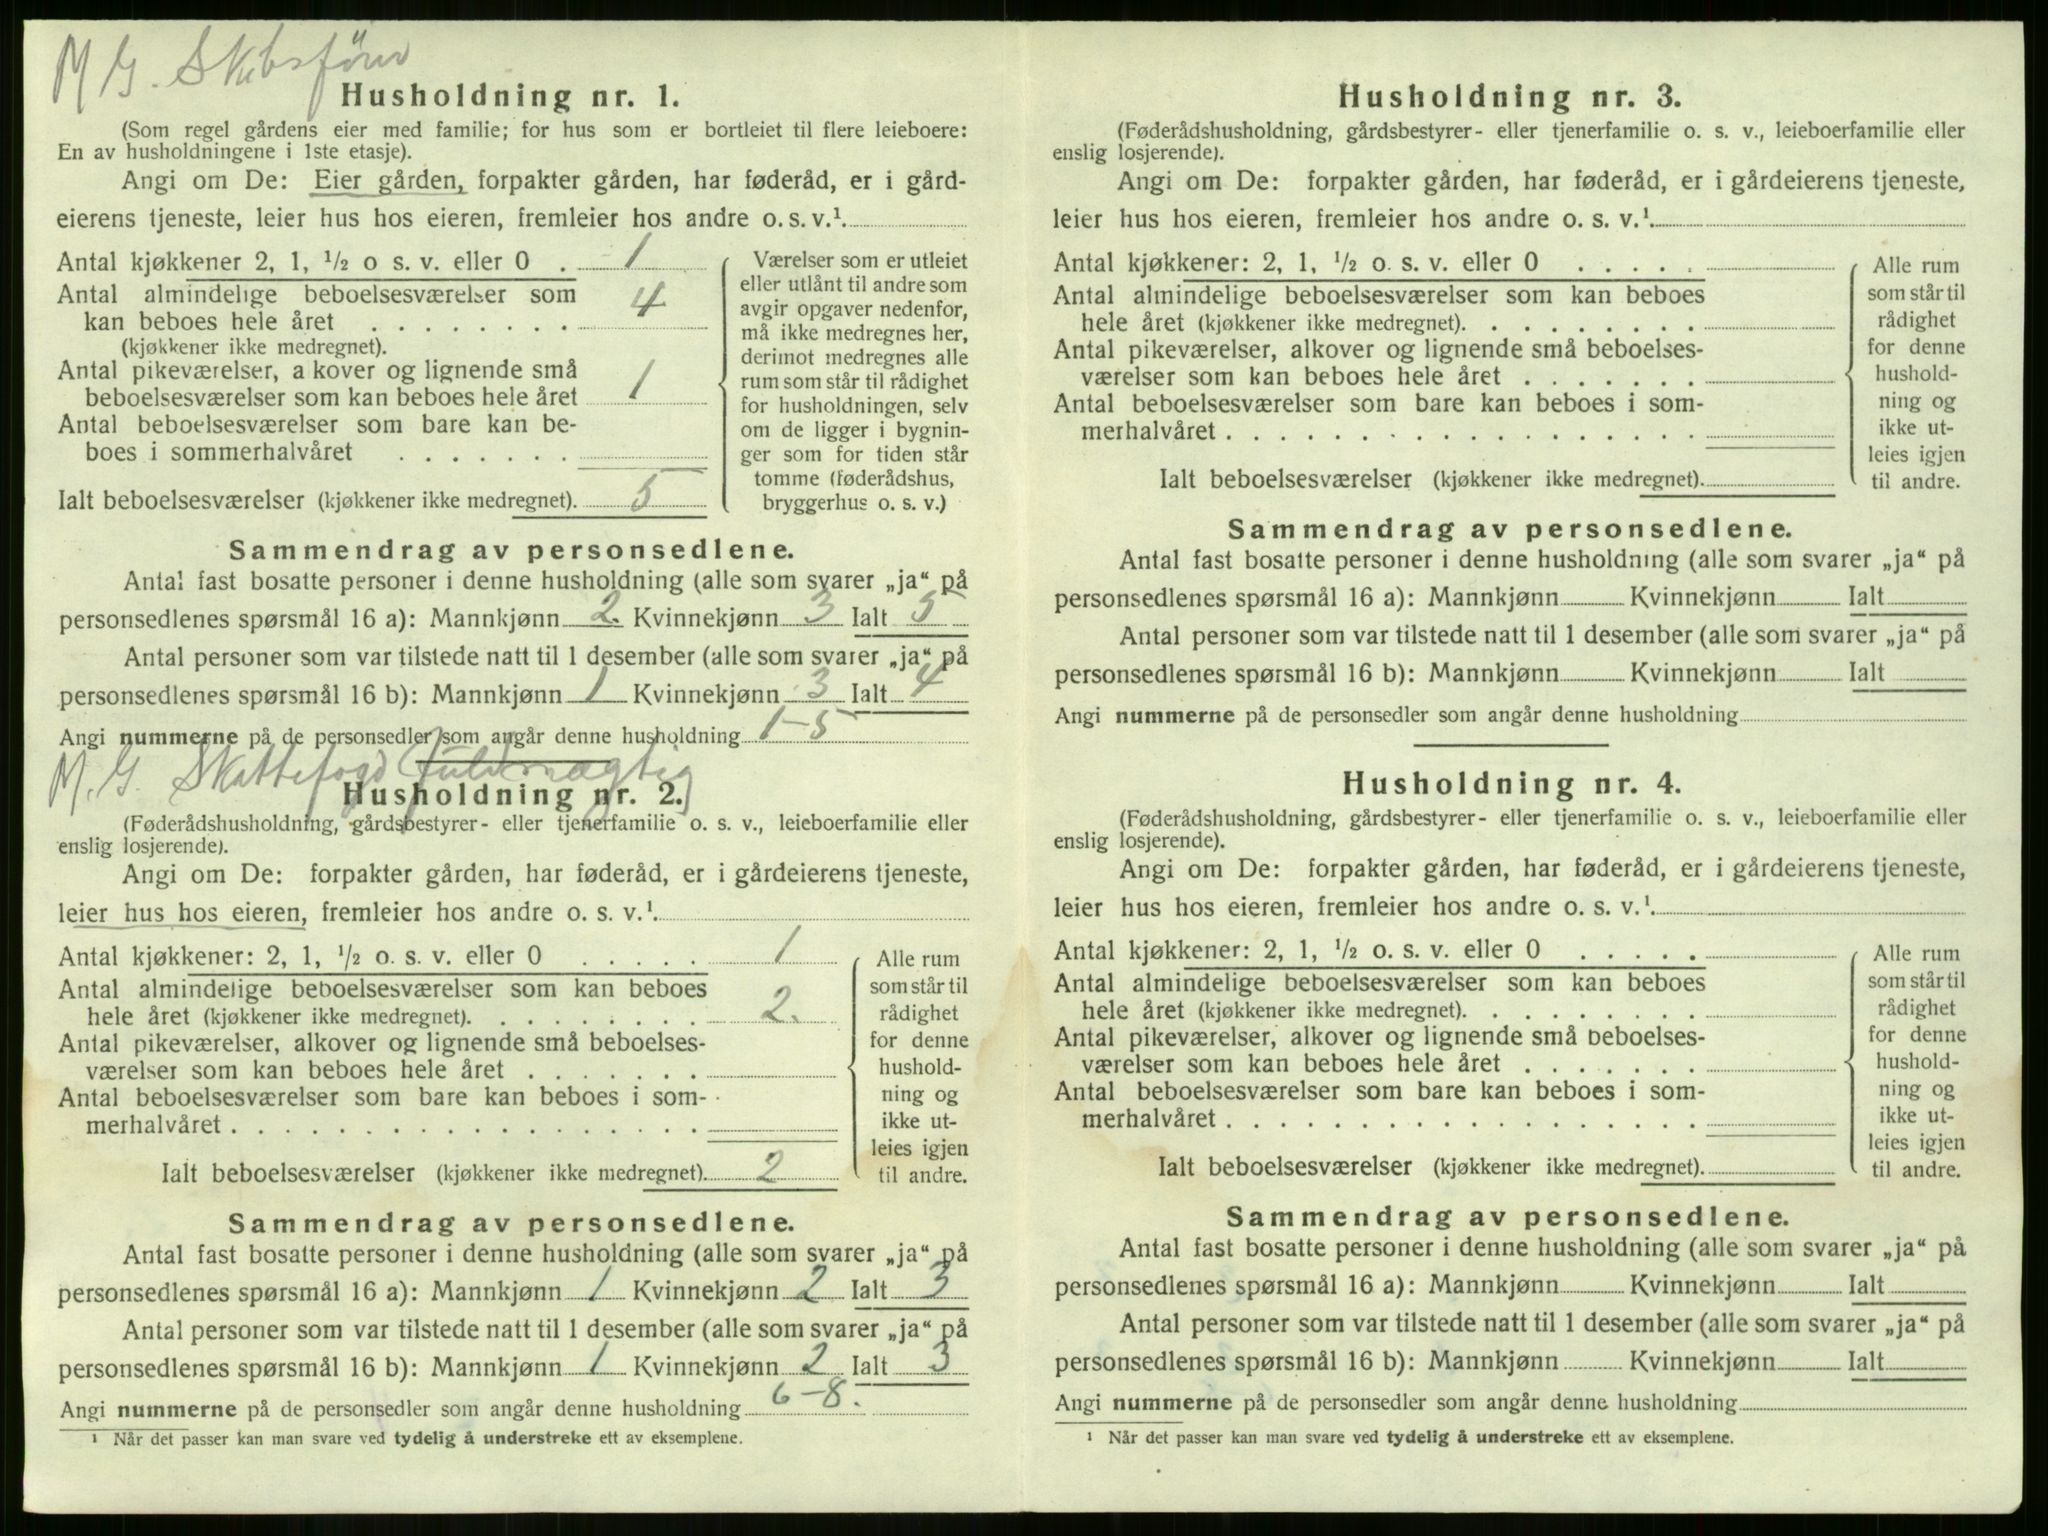 M G. Skibsförer
Husholdning nr. 1.
(Som regel gårdens eier med familie; for hus som er bortleiet til flere leieboere:
En av husholdningene i 1ste etasje).
Angi om De: Eier gården, forpakter gården, har føderåd, er i gård-
eierens tjeneste, leier hus hos eieren, fremleier hos andre o. s. v.¹.
Antal kjøkkener 2, 1, ½ o s. v. eller 0 . 1
Antal almindelige beboelsesværelser som
kan beboes hele året . . . . . . . . 4
(kjøkkener ikke medregnet).
Antal pikeværelser, a kover og lignende små
beboelsesværelser som kan beboes hele året 1
Antal beboelsesværelser som bare kan be-
boes i sommerhalvåret . . . . . . .
Ialt beboelsesværelser (kjøkkener ikke medregnet). 5
Værelser som er utleiet
eller utlånt til andre som
avgir opgaver nedenfor,
må ikke medregnes her,
derimot medregnes alle
rum som står til rådighet
for husholdningen, selv
om de ligger i bygnin-
ger som for tiden står
tomme (føderådshus,
bryggerhus o. s. v.)
Sammendrag av personsedlene.
Antal fast bosatte personer i denne husholdning (alle som svarer „ja“ på
personsedlenes spørsmål 16 a): Mannkjønn 2. Kvinnekjønn 3 Ialt 5
Antal personer som var tilstede natt til 1 desember (alle som svarer „ja“ på
personsedlenes spørsmål 16 b): Mannkjønn 1 Kvinnekjønn 3 Ialt 4
Angi nummerne på de personsedler som angår denne husholdning 1-5
M. G. Skattefogd (fuldmægtig)
Husholdning nr. 2.
(Føderådshusholdning, gårdsbestyrer- eller tjenerfamilie o. s. v., leieboerfamilie eller
enslig losjerende).
Angi om De: forpakter gården, har føderåd, er i gårdeierens tjeneste,
leier hus hos eieren, fremleier hos andre o. s. v.¹.
Antal kjøkkener: 2, 1, ½ o. s. v. eller 0 . . . . . 1
Antal almindelige beboelsesværelser som kan beboes
hele året (kjøkkener ikke medregnet). . . . . . . . . 2.
Antal pikeværelser, alkover og lignende små beboelses-
værelser som kan beboes hele året . . . . . . .
Antal beboelsesværelser som bare kan beboes i som-
merhalvåret . . . . . . . . . . . . . . . . . .
Ialt beboelsesværelser (kjøkkener ikke medregnet). 2
Alle rum
som står til
rådighet
for denne
hushold-
ning og
ikke ut-
leies igjen
til andre.
Sammendrag av personsedlene.
Antal fast bosatte personer i denne husholdning (alle som svarer „ja“ på
personsedlenes spørsmål 16 a): Mannkjønn 1 Kvinnekjønn 2 Ialt 3
Antal personer som var tilstede natt til 1 desember (alle som svarer „ja“ på
personsedlenes spørsmål 16 b): Mannkjønn 1 Kvinnekjønn 2 Ialt 3
Angi nummerne på de personsedler som angår denne husholdning 6-8.
¹ Når det passer kan man svare ved tydelig å understreke ett av eksemplene.
Husholdning nr. 3.
(Føderådshusholdning, gårdsbestyrer- eller tjenerfamilie o. s. v., leieboerfamilie eller
enslig losjerende).
Angi om De: forpakter gården, har føderåd, er i gårdeierens tjeneste,
leier hus hos eieren, fremleier hos andre o. s. v.¹.
Antal kjøkkener: 2, 1, ½ o. s. v. eller 0 . . . . .
Antal almindelige beboelsesværelser som kan beboes
hele året (kjøkkener ikke medregnet). . . . . . . . .
Antal pikeværelser, alkover og lignende små beboelses-
værelser som kan beboes hele året . . . . . . .
Antal beboelsesværelser som bare kan beboes i som-
merhalvåret . . . . . . . . . . . . . . . . . .
Ialt beboelsesværelser (kjøkkener ikke medregnet).
Alle rum
som står til
rådighet
for denne
hushold-
ning og
ikke ut-
leies igjen
til andre.
Sammendrag av personsedlene.
Antal fast bosatte personer i denne husholdning (alle som svarer „ja“ på
personsedlenes spørsmål 16 a): Mannkjønn Kvinnekjønn Ialt
Antal personer som var tilstede natt til 1 desember (alle som svarer „ja“ på
personsedlenes spørsmål 16 b): Mannkjønn Kvinnekjønn Ialt
Angi nummerne på de personsedler som angår denne husholdning
Husholdning nr. 4.
(Føderådshusholdning, gårdsbestyrer- eller tjenerfamilie o. s. v., leieboerfamilie eller
enslig losjerende).
Angi om De: forpakter gården, har føderåd, er i gårdeierens tjeneste,
leier hus hos eieren, fremleier hos andre o. s. v.¹.
Antal kjøkkener: 2, 1, ½ o. s. v. eller 0 . . . . .
Antal almindelige beboelsesværelser som kan beboes
hele året (kjøkkener ikke medregnet). . . . . . . . .
Antal pikeværelser, alkover og lignende små beboelses-
værelser som kan beboes hele året . . . . . . .
Antal beboelsesværelser som bare kan beboes i som-
merhalvåret . . . . . . . . . . . . . . . . . .
Ialt beboelsesværelser (kjøkkener ikke medregnet).
Alle rum
som står til
rådighet
for denne
hushold-
ning og
ikke ut-
leies igjen
til andre.
Sammendrag av personsedlene.
Antal fast bosatte personer i denne husholdning (alle som svarer „ja“ på
personsedlenes spørsmål 16 a): Mannkjønn Kvinnekjønn Ialt
Antal personer som var tilstede natt til 1 desember (alle som svarer „ja“ på
personsedlenes spørsmål 16 b): Mannkjønn Kvinnekjønn Ialt
Angi nummerne på de personsedler som angår denne husholdning
¹ Når det passer kan man svare ved tydelig å understreke ett av eksemplene.